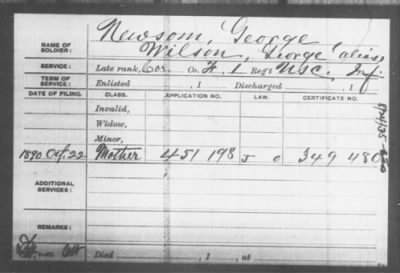 Newsom, George
NAME OF SOLDIER: Wilson, George alias,
SERVICE: Late rank, Cor. Co. F, 1 Reg't U.S.C. Inf.
TERM OF SERVICE: Enlisted , 1 Discharged , 1
DATE OF FILING. CLASS. APPLICATION NO. LAW. CERTIFICATE NO.
Invalid,
Widow,
Minor,
1890 Oct. 22 Mother 451 198 J 349 480
ADDITIONAL SERVICES:
REMARKS:
Died , 1 , at